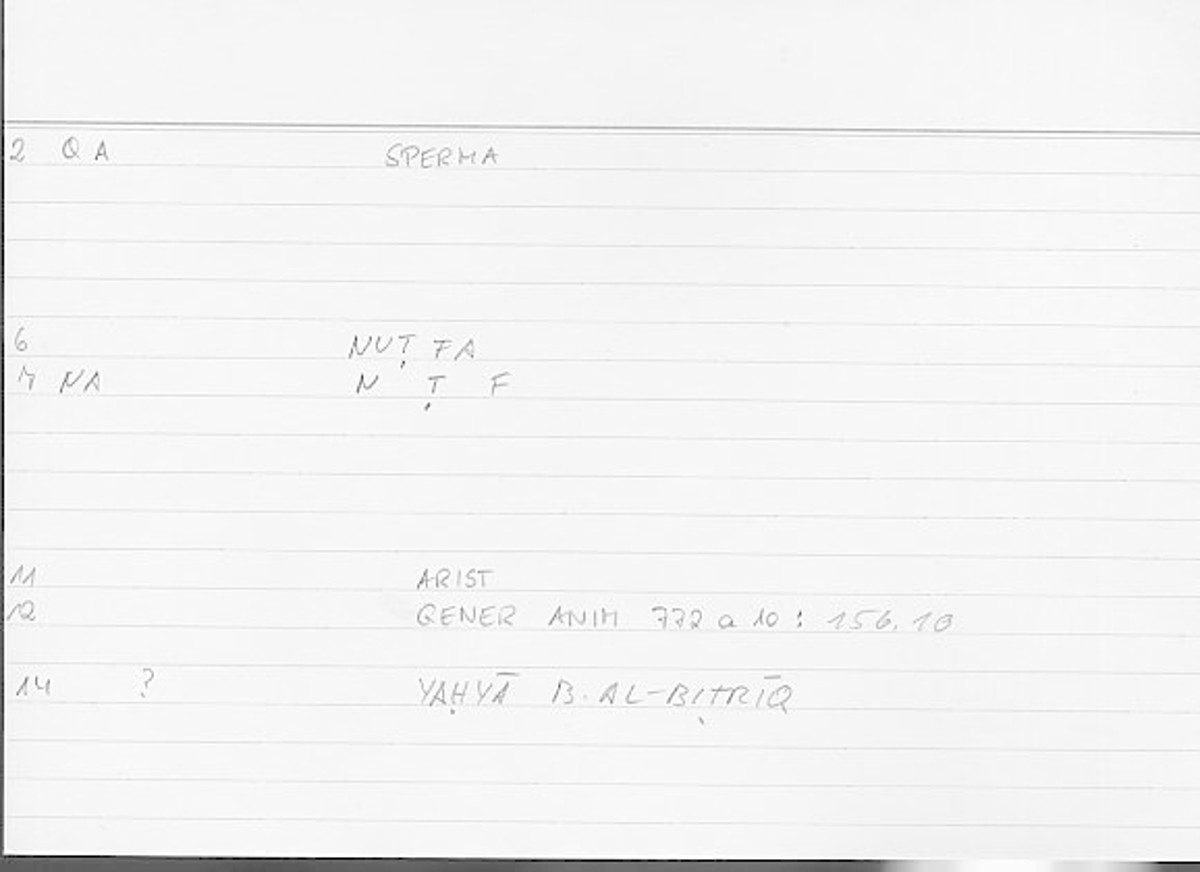 2 QA SPERMA
6 NUṬFA
7 NA N Ṭ F
11 ARIST
12 GENER ANIM 772 a 10 : 156.10
14 ? YAḤYĀ B. AL-BIṬRĪQ